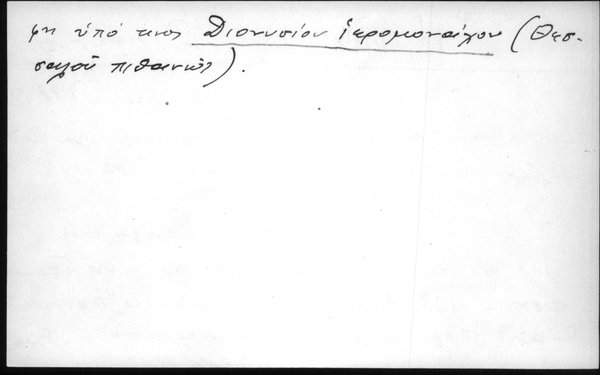 φη ὑπό τινος Διονυσίου ἱερομονάχου (Θεσ-
σαλοῦ πιθανῶς).